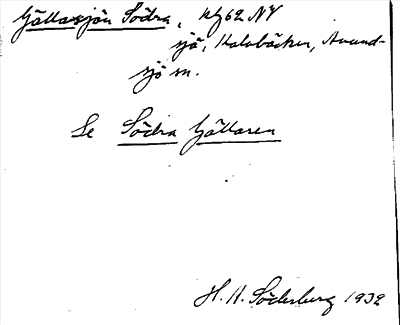 Gällasjön Södra, kbl 62 NV
sjö, Kalvbäcken, Anund-
sjö sn.
Se Södra Gällaren
H. H. Söderberg 1932